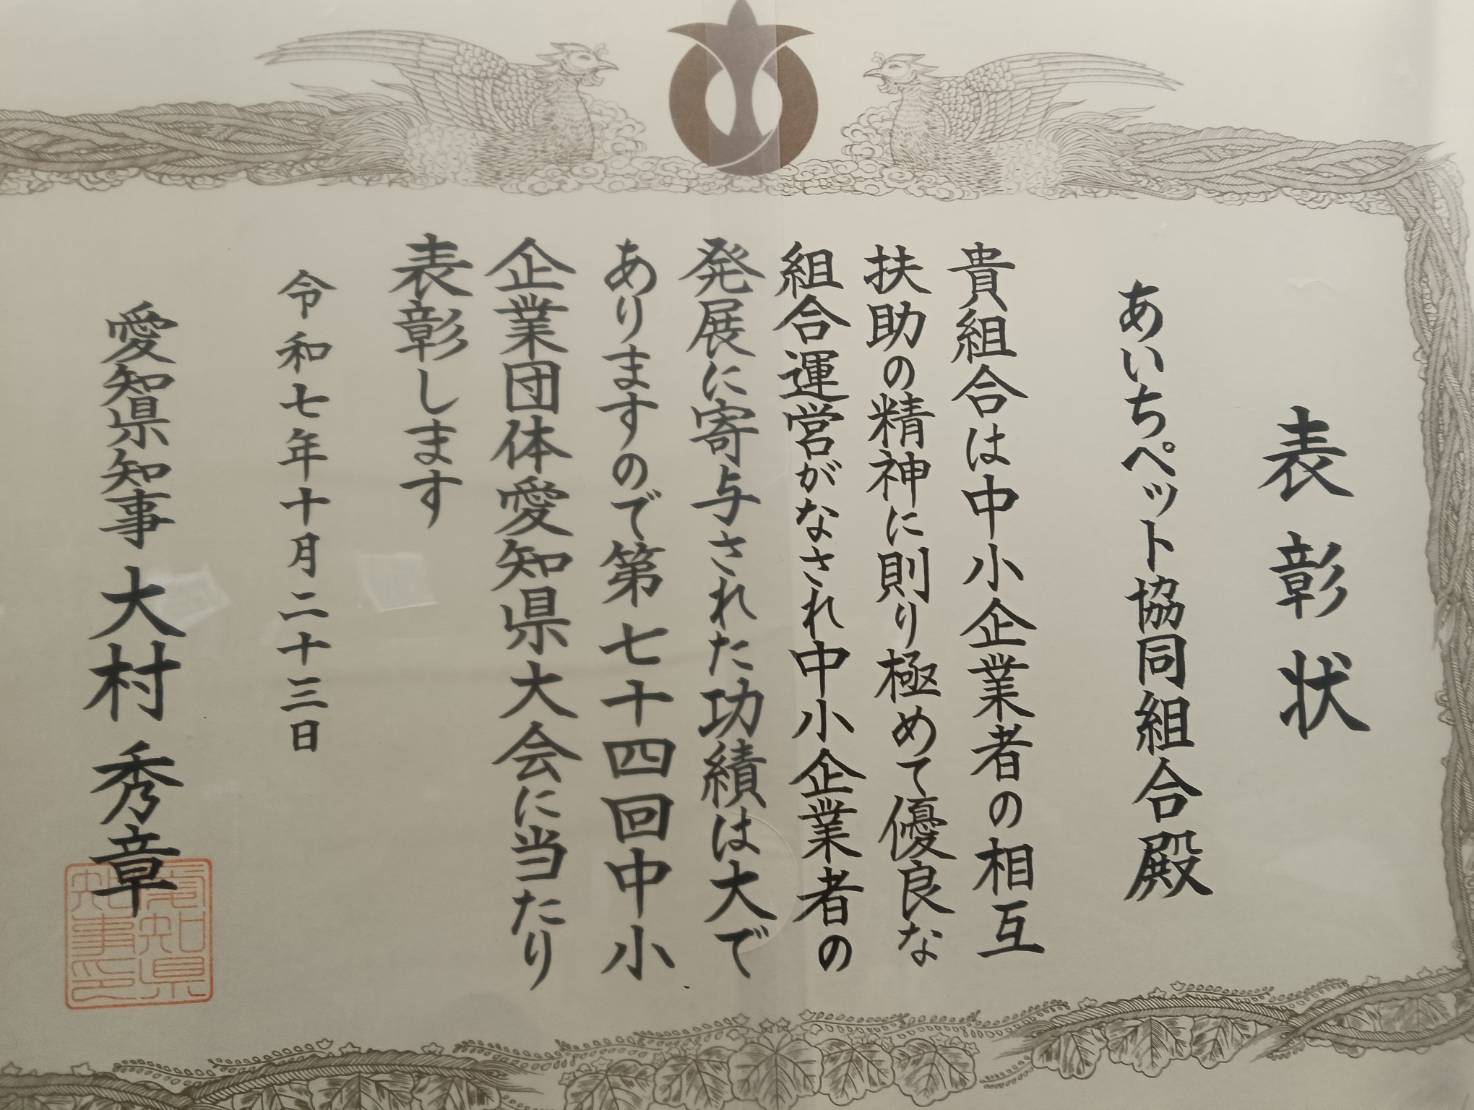 表彰状
あいちペット協同組合殿
貴組合は中小企業者の相互
扶助の精神に則り極めて優良な
組合運営がなされ中小企業者の
発展に寄与された功績は大で
ありますので第七十四回中小
企業団体愛知県大会に当たり
表彰します
令和七年十月二十三日
愛知県知事 大村秀章
愛知県
知事印